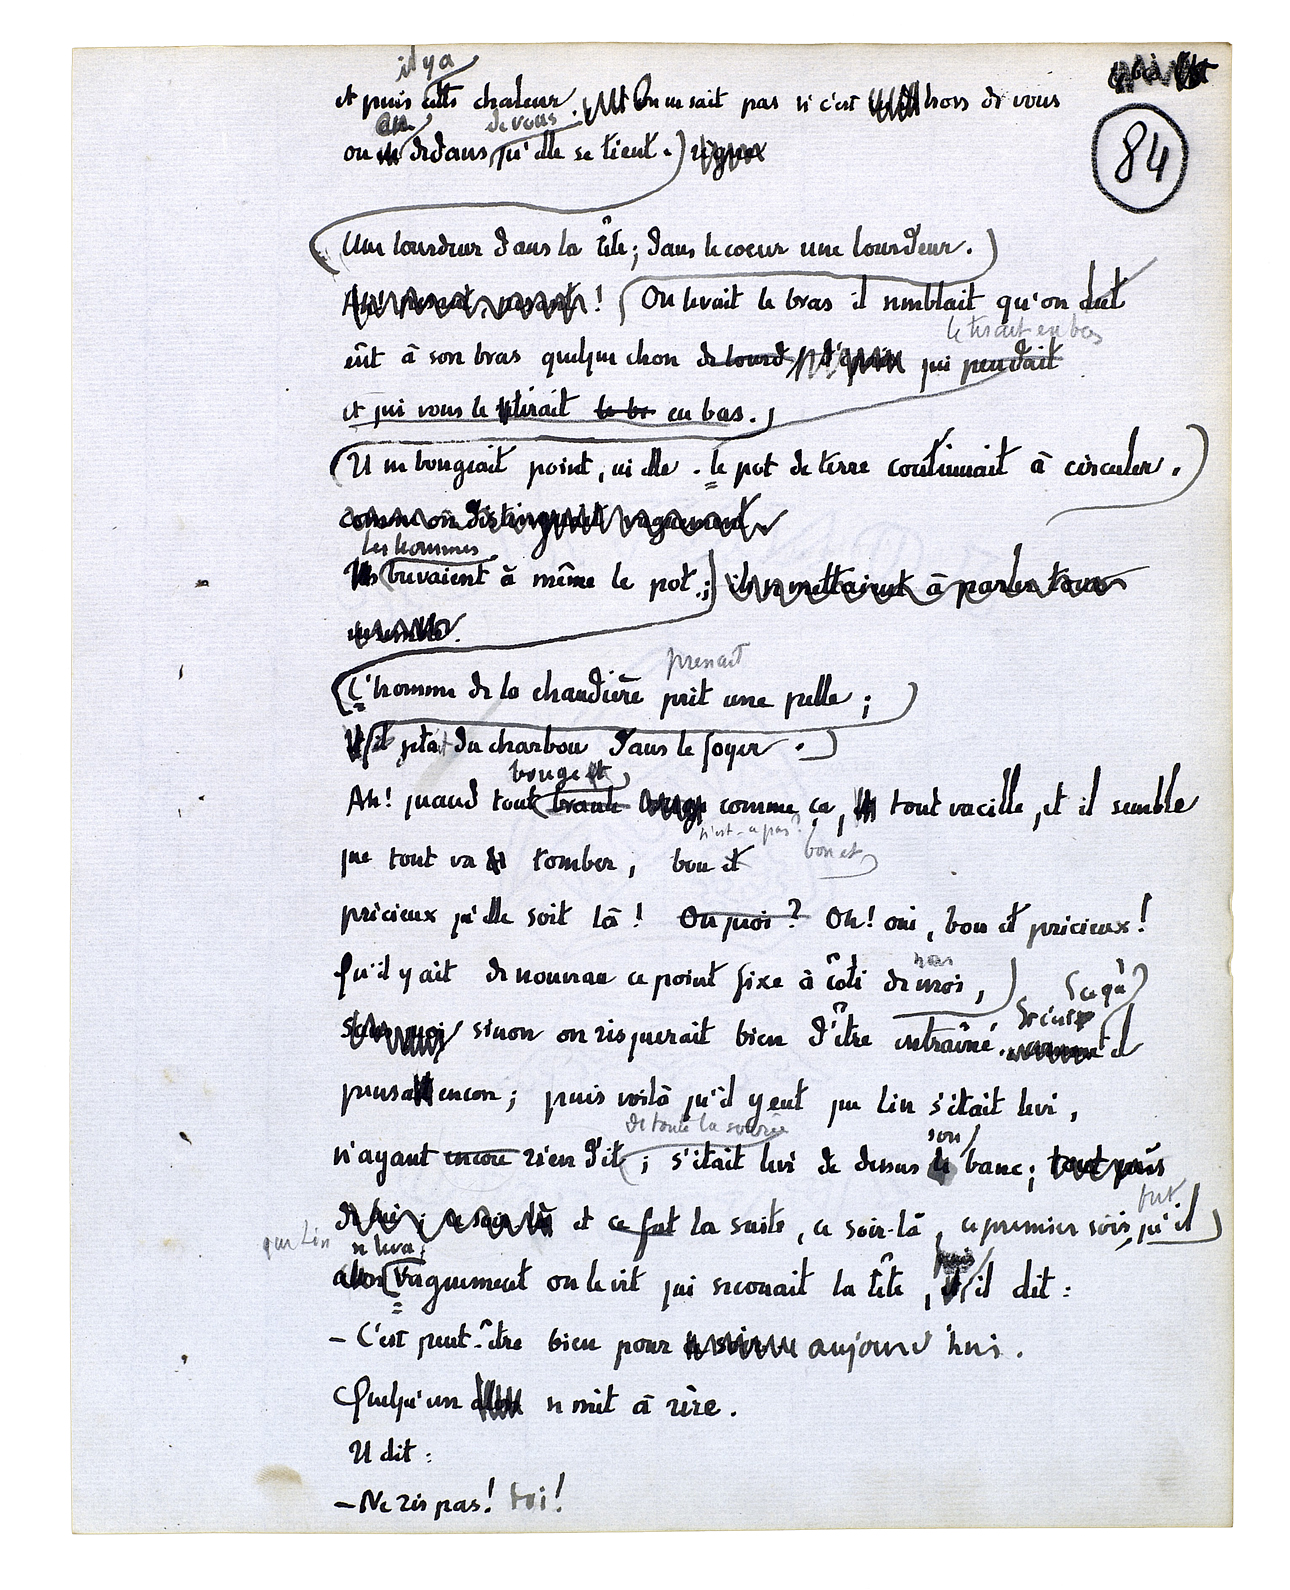 il y a
et puis cette chaleur. On ne sait pas si c'est hors de vous
au de vous
ou dedans qu'elle se tient.)
84
(Une lourdeur dans la tête ; dans le coeur une lourdeur.)
! (On levait le bras il semblait qu'on dût
le tirait en bas
eût à son bras quelque chose de lourd qui pendait
et qui vous le tirait en bas.)
(Il ne bougeait point, ni elle. le pot de terre continuait à circuler.)
comme on distinguait vaguement
les hommes
Ils buvaient à même le pot. ;) ils se mettaient à parler tous
ensemble.
prenait
(L'homme de la chaudière prit une pelle ; )
il jeta du charbon dans le foyer. )
bouge et
Ah ! quand tout branle bouge comme ça, tout vacille, et il semble
n'est-ce pas ? bon et
que tout va tomber, bon et
précieux qu'elle soit là ! Ou quoi ? Oh ! oui, bon et précieux !
nous
Qu'il y ait de nouveau ce point fixe à côté de moi, )
Ce qu'
sinon on risquerait bien d'être entraîné. il
pensa encore ; puis voilà qu'il y eut que Lin s'était levé,
de toute la soirée
n'ayant encore rien dit ; s'était levé de dessus le banc ; tout près
son
fut
de lui ; ce soir-là et ce fut la suite, ce soir-là, ce premier soir, qu'il
que Lin se leva ;
alors Vaguement on le vit qui secouait la tête, puis il dit :
– C'est peut-être bien pour ce soir aujourd'hui.
Quelqu'un se mit à rire.
Il dit :
– Ne ris pas ! toi !